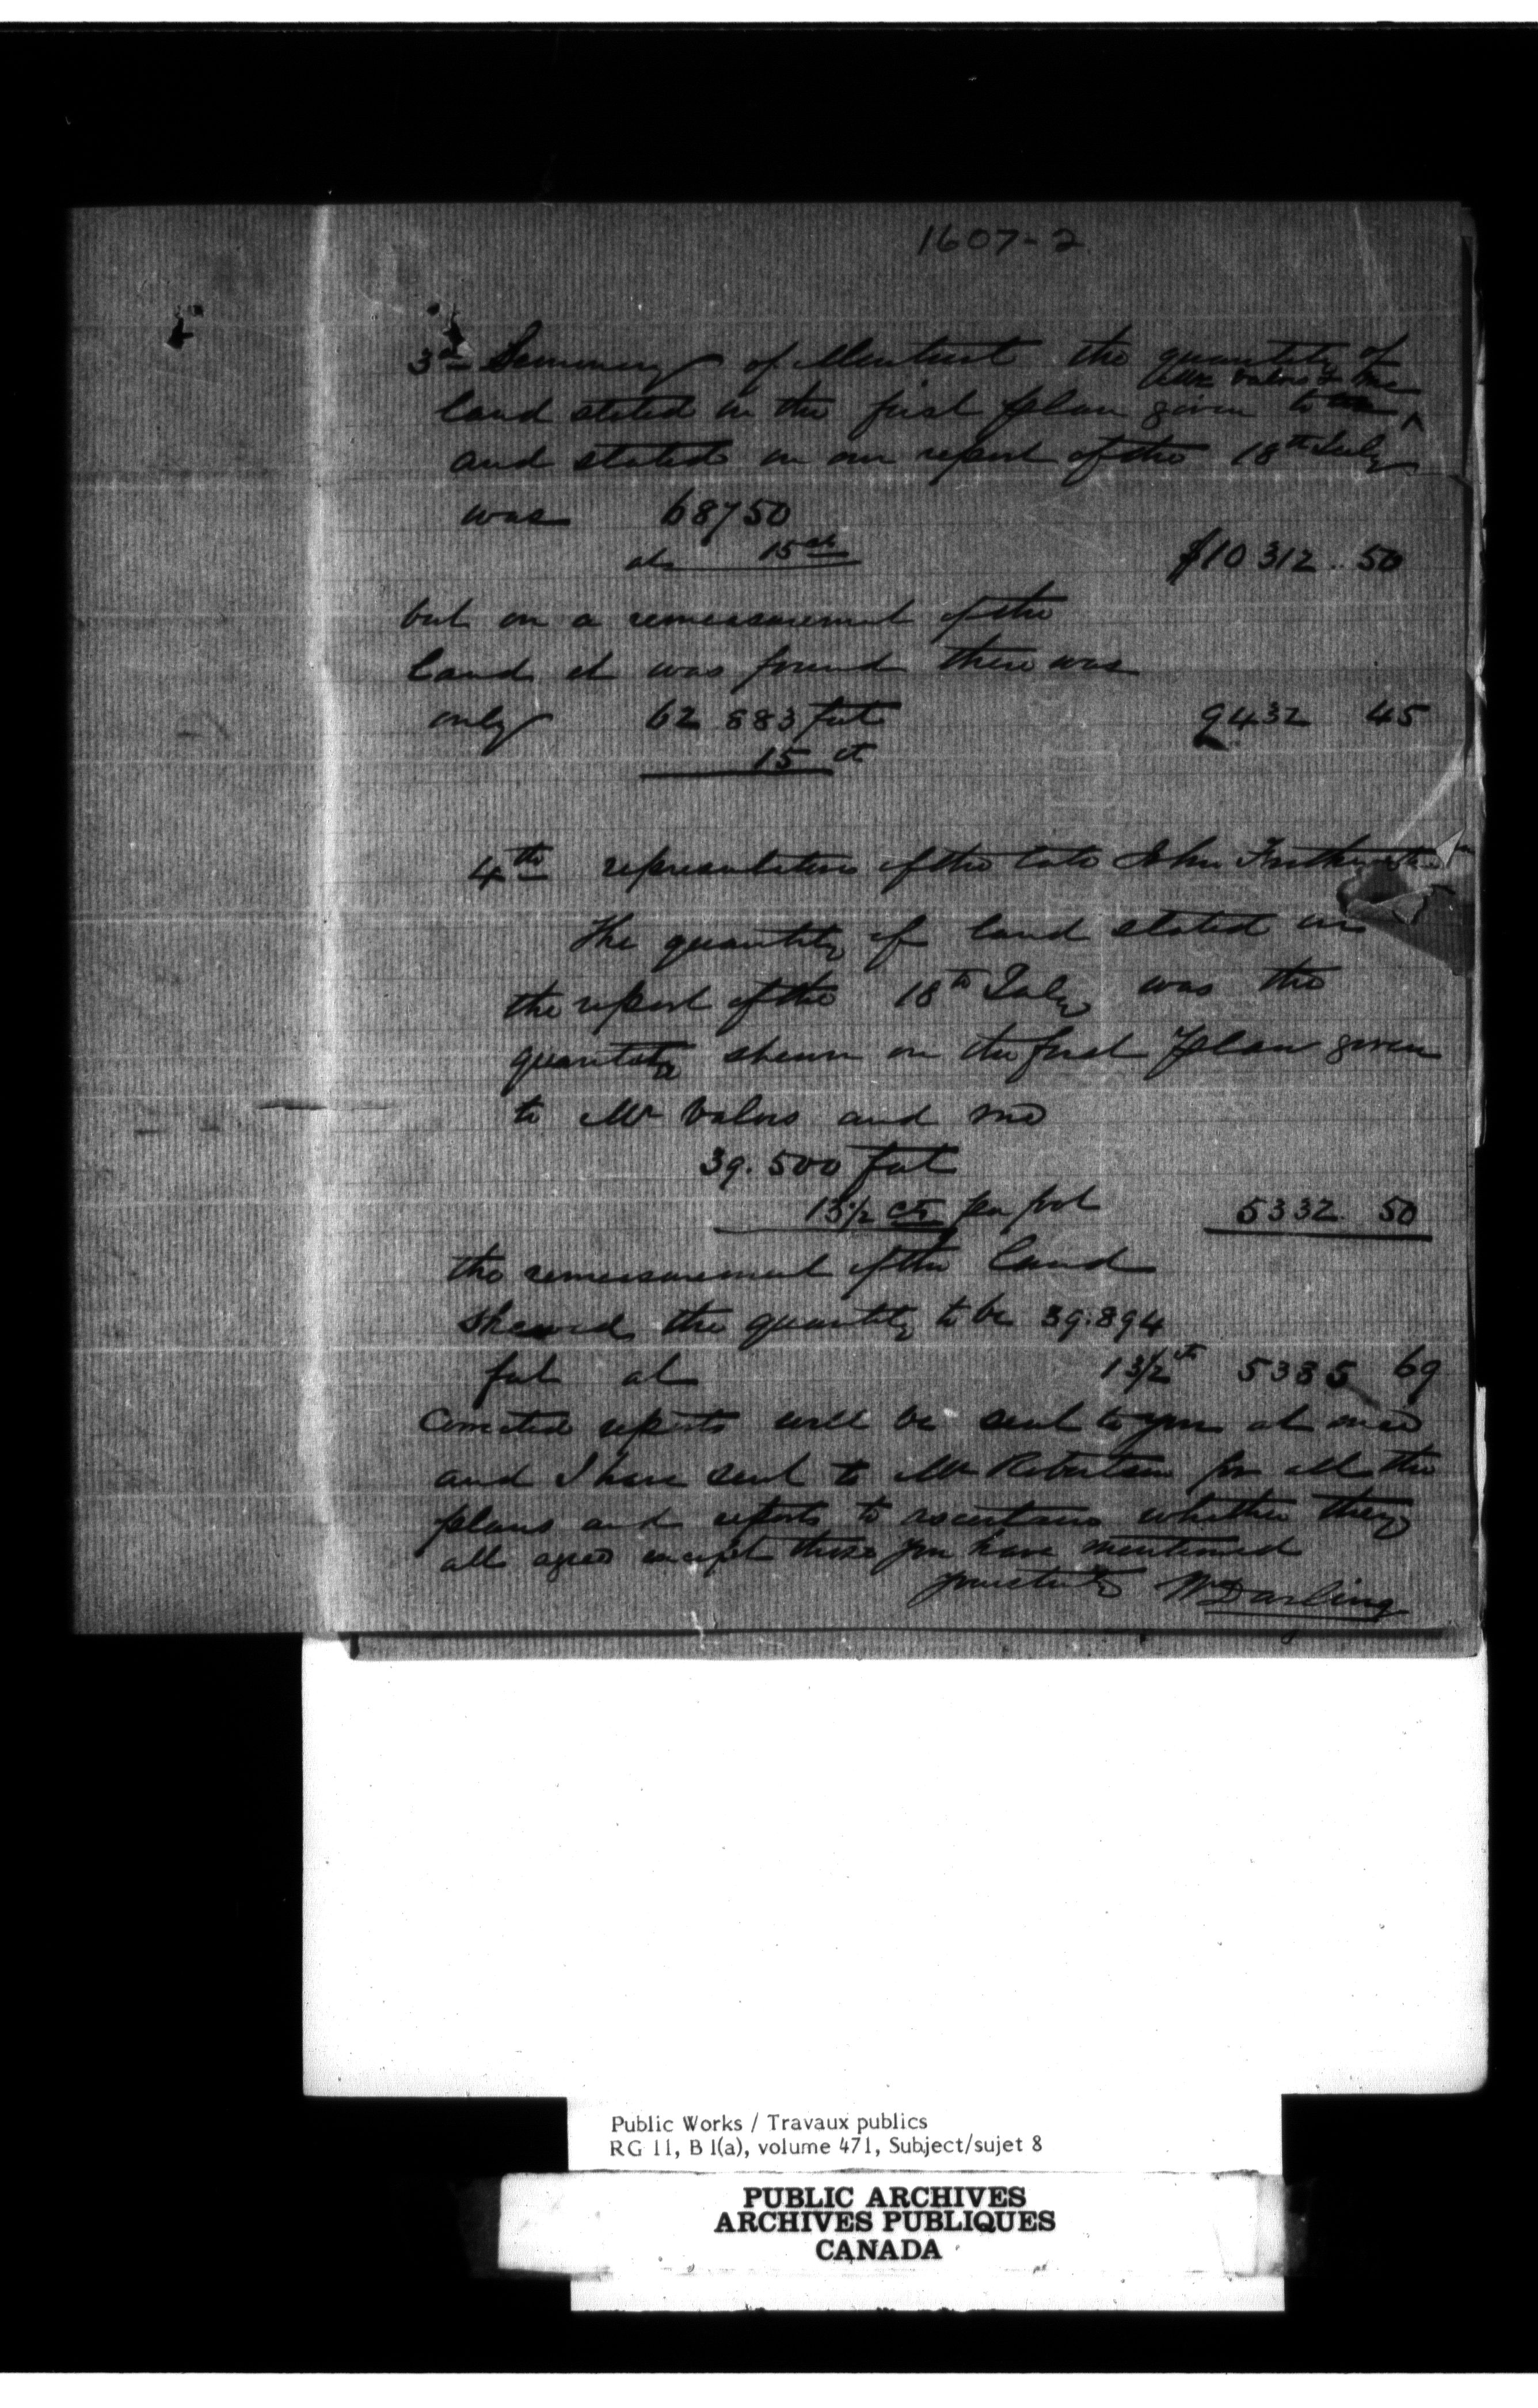 1607-2
3rd Seminary of Montreal the quantity of
Mr Valois & me
land stated in the first plan given to
and stated in our report of the 18th July
was 68750
at 15 cts $10312..50
but on a remeasurement of the
land it was found there was
only 62 883 feet 9432 45
15 ct
4th representatives of the late John
The quantity of land stated in
the report of the 18th July was the
quantity shewn on the first plan given
to Mr Valois and me
39.500 feet
13½ cts per foot 5332. 50
the remeasurement of the land
shewed the quantity to be 39.894
feet at 13½ cts 5385 69
Corrected reports will be sent to you at once
and I have sent to Mr Robertson for all the
plans and reports to ascertain whether they
all agree except those you have mentioned
yours truly W Darling
Public Works / Travaux publics
RG 11, B 1(a), volume 471, Subject/sujet 8
PUBLIC ARCHIVES
ARCHIVES PUBLIQUES
CANADA